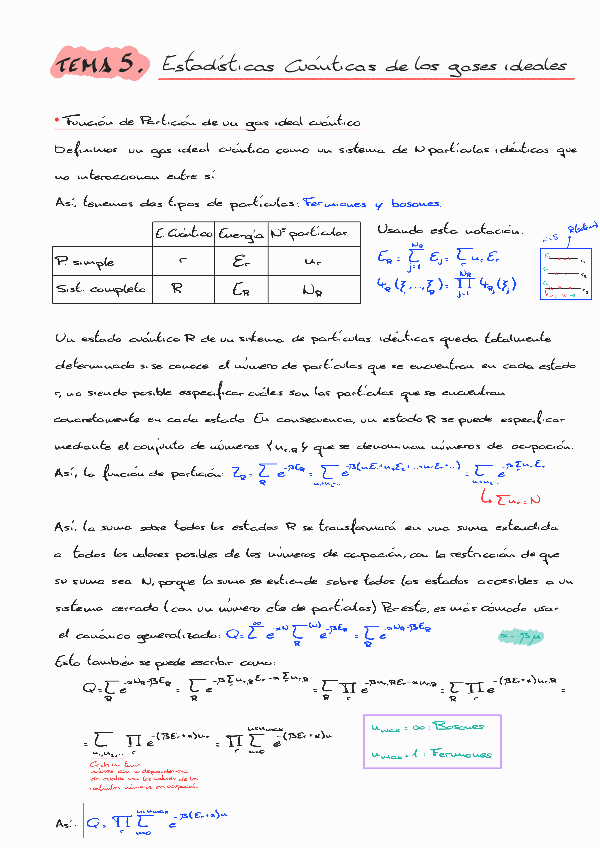 TEMA 5. Estadísticas Cuánticas de los gases ideales
• Función de Partición de un gas ideal cuántico
Definimos un gas ideal cuántico como un sistema de N partículas idénticas que
no interaccionan entre sí
Así, tenemos dos tipos de partículas: Fermiones y bosones.
E. Cuántico Energía Nº partículas
P. simple r εr nr
Sist. completo R ER NR
Usando esta notación:
ER = Σ_{j=1}^{NR} εj = Σ_r nr εr
ΨR (ξ1,...,ξR) = Π_{j=1}^{NR} ΨRj (ξj)
Un estado cuántico R de un sistema de partículas idénticas queda totalmente
determinado si se conoce el número de partículas que se encuentran en cada estado
r, no siendo posible especificar cuáles son las partículas que se encuentran
concretamente en cada estado. En consecuencia, un estado R se puede especificar
mediante el conjunto de números {nr,R} que se denominan números de ocupación.
Así, la función de partición: ZR = Σ_R e^{-βER} = Σ_{n1,n2...} e^{-β(n1ε1+n2ε2+...+nrεr+...)} = Σ_{n1,n2...} e^{-βΣnrεr}
↳ Σ nr = N
Así, la suma sobre todos los estados R se transformará en una suma extendida
a todos los valores posibles de los números de ocupación, con la restricción de que
su suma sea N, porque la suma se extiende sobre todos los estados accesibles a un
sistema cerrado (con un número cte de partículas) Por esto, es más cómodo usar
el canónico generalizado: Q = Σ^∞ e^{-αN} Σ_R^{(N)} e^{-βER} = Σ_R e^{-αNR-βER}
α=-βμ
Esto también se puede escribir como:
Q = Σ_R e^{-αNR-βER} = Σ_R e^{-βΣnr,Rεr-αΣnr,R} = Σ_R Π_r e^{-βnr,Rεr-αnr,R} = Σ_R Π_r e^{-(βεr+α)nr,R} =
= Σ_{n1,n2,...} Π_r e^{-(βεr+α)nr} = Π_r Σ_{n=0}^{nmax} e^{-(βεr+α)n}
nmax = ∞ : Bosones
nmax = 1 : Fermiones
Así: Q = Π_r Σ_{n=0}^{nmax} e^{-β(εr+α)n}